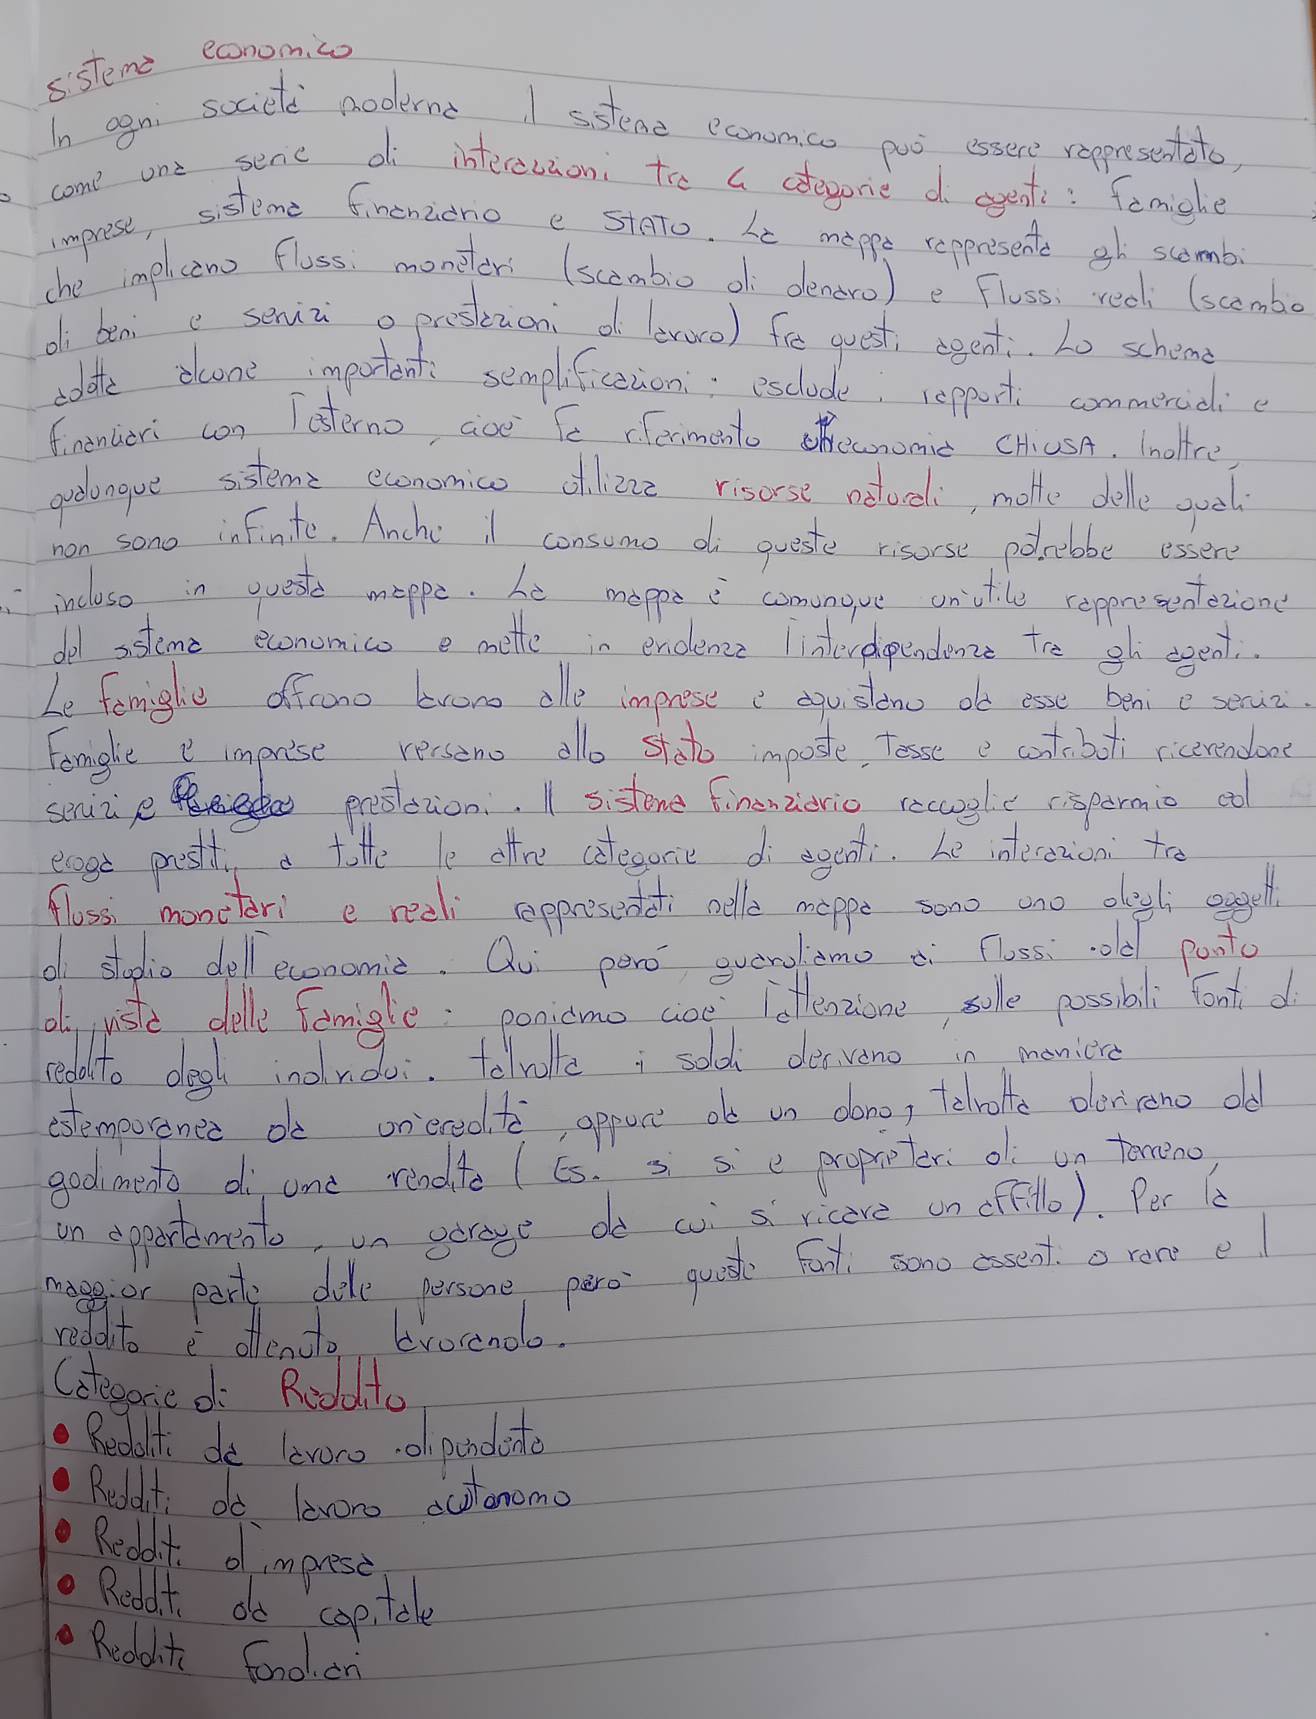 sistema economico
In ogni società moderna il sistema economico può essere rappresentato,
come una serie di interazioni tra 4 categorie di agenti: famiglie
imprese, sistema finanziario e STATO. La mappa rappresenta gli scambi
che implicano flussi monetari (scambio di denaro) e flussi reali (scambio
di beni e servizi o prestazioni di lavoro) fra questi agenti. Lo schema
adotta alcune importanti semplificazioni: esclude i rapporti commerciali e
finanziari con l'esterno, cioè fa riferimento economia CHIUSA. Inoltre,
qualunque sistema economico utilizza risorse naturali, molte delle quali
non sono infinite. Anche il consumo di queste risorse potrebbe essere
incluso in questa mappa. La mappa è comunque un'utile rappresentazione
del sistema economico e mette in evidenza l'interdipendenza tra gli agenti.
Le famiglie offrono lavoro alle imprese e aquistano da esse beni e servizi.
Famiglie e imprese versano allo Stato imposte, Tasse e contributi ricevendone
servizi e prestazioni. Il sistema finanziario raccoglie risparmio ed
eroga prestiti a tutte le altre categorie di agenti. Le interazioni tra
flussi monetari e reali rappresentati nella mappa sono uno degli oggetti
di studio dell'economia. Qui però guardiamo ai flussi dal punto
di vista delle famiglie: poniamo cioè l'attenzione, sulle possibili fonti di
reddito degli individui. talvolta i soldi derivano in maniera
estemporanea da un'eredità, oppure da un dono, talvolta derivano dal
godimento di una rendita (Es. si si è proprietari di un terreno,
un appartamento, un garage da cui si ricava un affitto). Per la
maggior parte delle persone però queste fonti sono assenti o rare e il
reddito è ottenuto lavorando.
Categorie di Reddito
• Redditi da lavoro dipendente
• Redditi da lavoro autonomo
• Redditi d'impresa
• Redditi da capitale
• Redditi fondiari